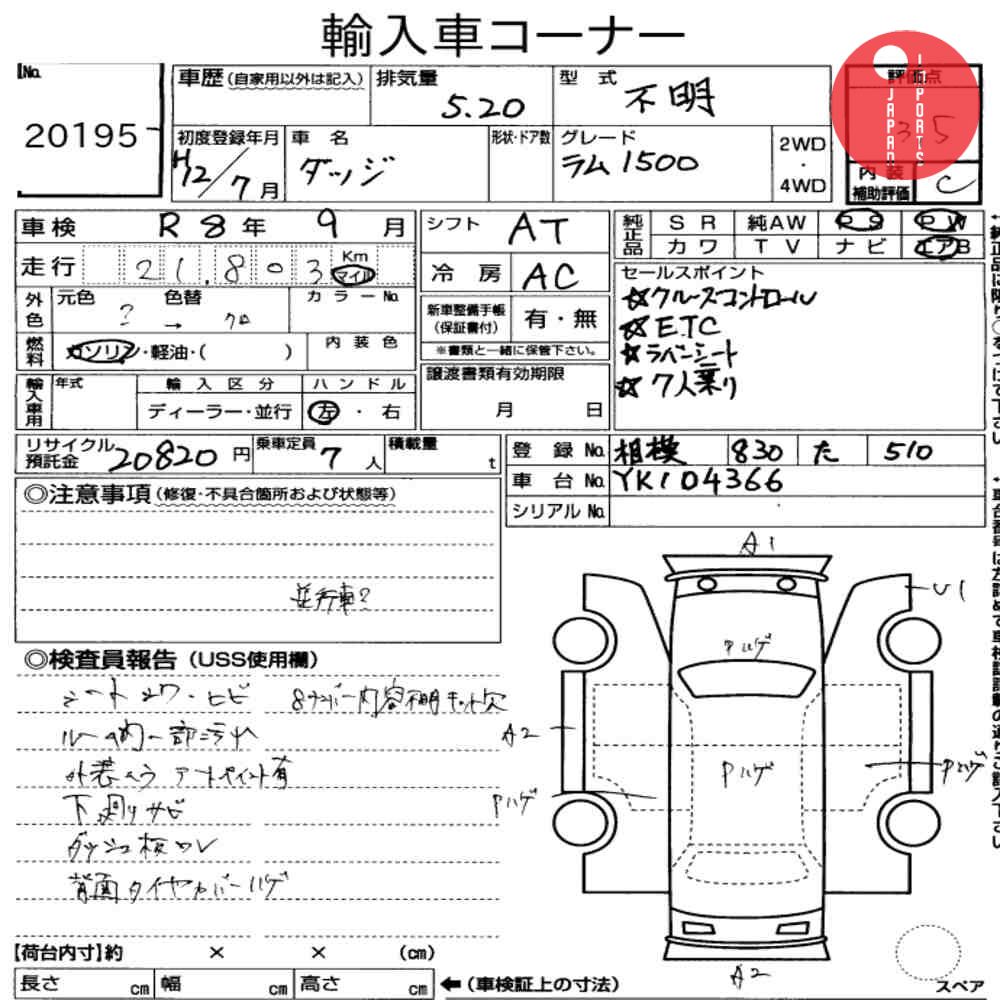 輸入車コーナー
No. 20195
車歴 (自家用以外は記入)
排気量 5.20
型式 不明
評価点 3.5
JAPAN IMPORTS
初度登録年月 H12/7月
車名 ダッジ
形状・ドア数
グレード ラム1500
2WD・4WD
内装補助評価 C
車検 R8年 9月
シフト AT
純正品 SR 純AW PS PW
カワ TV ナビ エアB
走行 21,803 Km マイル
冷房 AC
セールスポイント
☆クルーズコントロール
☆ETC
☆ラバンシート
☆7人乗り
外色 元色 ? → 色替 クロ カラーNo.
新車整備手帳(保証書付) 有・無
※書類と一緒に保管下さい。
燃料 ガソリン・軽油・( ) 内装色
輸入車用 年式 輸入区分 ハンドル
ディーラー・並行 左・右
譲渡書類有効期限
月 日
リサイクル預託金 20820円 乗車定員 7人 積載量 t
登録No. 相模 830 た 510
車台No. YK104366
シリアルNo.
◎注意事項 (修復・不具合箇所および状態等)
並行車?
◎検査員報告 (USS使用欄)
シートシワ・ヒビ
8ナンバー内容不明キット欠
ルーム内一部汚れ
外装 アートペイント有
下廻りサビ
ダッシュ板ワレ
背面タイヤカバーハゲ
A1
U1
Pハゲ
A2
Pハゲ
Pハゲ
Pハゲ
A2
【荷台内寸】約 × × (cm)
長さ cm 幅 cm 高さ cm
←(車検証上の寸法)
スペア